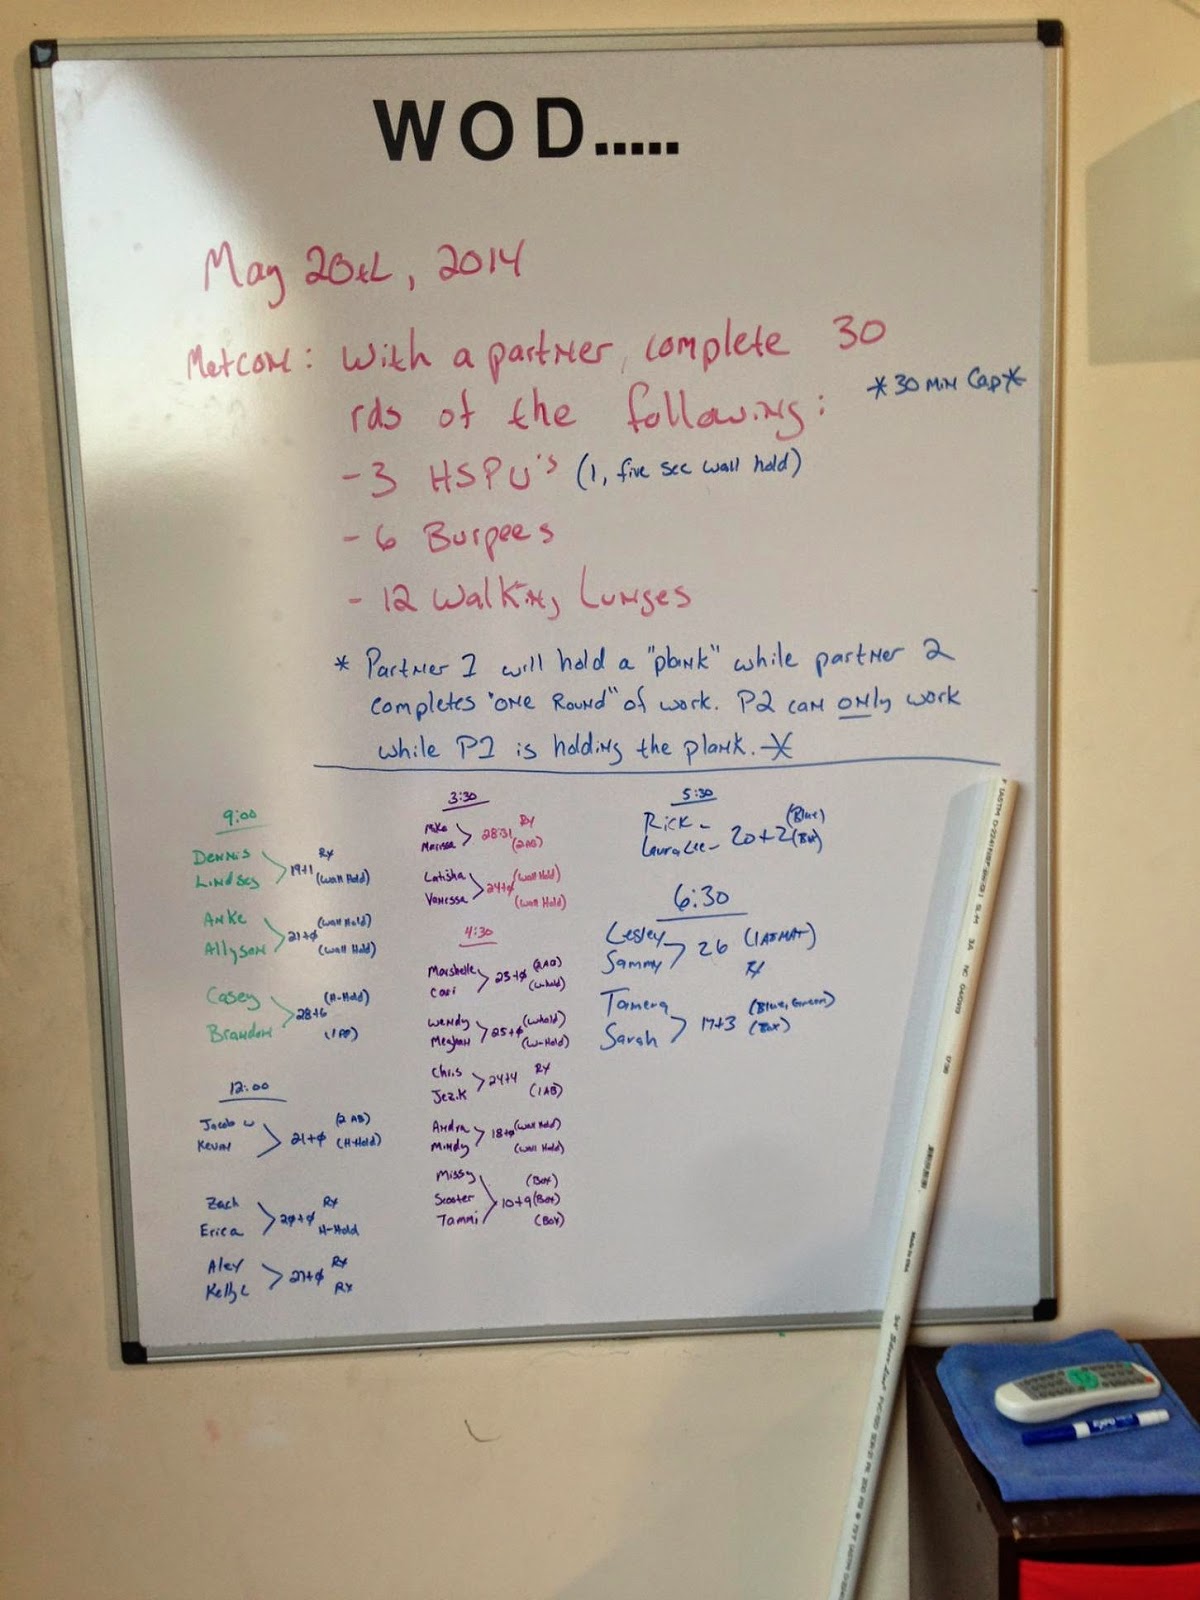 WOD.....
May 28th, 2014
Metcon: With a partner, complete 30
rds of the following:
*30 min Cap*
-3 HSPU's (1, five sec wall hold)
-6 Burpees
-12 Walking Lunges
* Partner 1 will hold a "plank" while partner 2
completes "one Round" of work. P2 can only work
while P1 is holding the plank.*
9:00
Dennis
Lindsey
19+1
Rx
(wall Hold)
Anke
Allyson
21+0
(wall Hold)
(wall Hold)
Casey
Brandon
28+6
(H-Hold)
12:00
Jacob W
Kevin
21+0
(2 AB)
(H-Hold)
Zach
Erica
20+0
Rx
H-Hold
Alex
Kelly L
27+0
Rx
Rx
3:30
Mike
Marissa
28:31
Rx
(2AB)
Latisha
Vanessa
24+0
(wall Hold)
(wall Hold)
4:30
Marshelle
Cari
23+0
(2AB)
(w-hold)
Wendy
Meghan
25+0
(w hold)
(w-Hold)
Chris
Jez.K
24+4
Rx
(1 AB)
Andra
Mindy
18+0
(wall Hold)
(wall Hold)
Missy
Scooter
Tammi
10+9
(Box)
(Box)
(Box)
5:30
Rick -
Lauralee -
20+2
(Blue)
(Box)
6:30
Lesley
Sammy
26
(1 ABMAT)
Rx
Tamera
Sarah
17+3
(Blue, Green)
(Box)